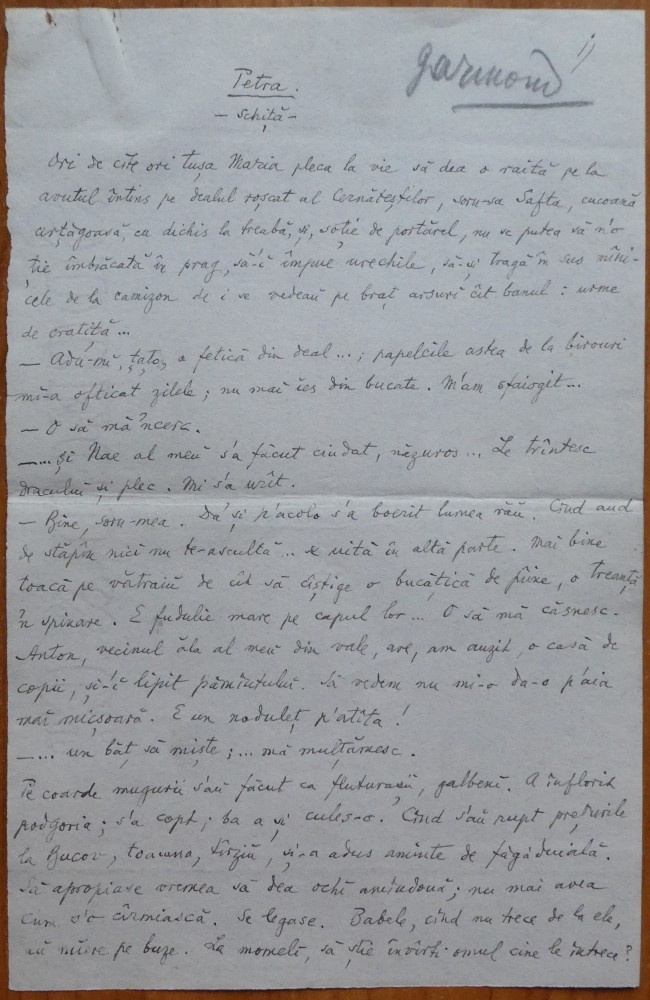 garmond 1)
Petra.
– Schiță –
Ori de cîte ori tușa Maria pleca la vie să dea o raită pe la
avutul întins pe dealul roșcat al Cernăteștilor, soru-sa Safta, cucoană
arțăgoasă, cu dichis la treabă, și, soție de portărel, nu se putea să n'o
ție îmbrăcată în prag, să-i împuie urechile, să-și tragă în sus mîni-
cele de la camizon de i se vedeau pe braț arsuri cît banul : urme
de cratiță...
– Adu-mi, țațo, o fetică din deal...; papelcile astea de la birouri
mi-a ofticat zilele; nu mai ies din bucate. M'am sfaiogit...
– O să mă 'ncerc.
– ... și Nae al meu s'a făcut ciudat, năzuros... Le trîntesc
dracului și plec. Mi s'a urît.
– Bine, soru-mea. Da' și p'acolo s'a boerit lumea rău. Cînd aud
de stăpîn nici nu te-ascultă... se uită în altă parte. Mai bine
toacă pe vătraiu de cît să cîștige o bucățică de pîine, o treanță
'n spinare. E fudulie mare pe capul lor... O să mă căsnesc.
Anton, vecinul ăla al meu din vale, are, am auzit, o casă de
copii, și-i lipit pămîntului. Să vedem nu mi-o da-o p'aia
mai micșoară. E un noduleț p'atîta!
– ... un băț să miște; ... mă mulțămesc.
Pe coarde mugurii s'au făcut ca fluturașii, galbeni. A înflorit
podgoria; s'a copt; ba a și cules-o. Cînd s'au rupt prețurile
la Bucov, toamna, tîrziu, și-a adus aminte de făgăduială.
Să apropiase vremea să dea ochi amîndouă; nu mai avea
cum s'o cîrmiască. Se legase. Babele, cînd nu trece de la ele,
au miere pe buze. La momeli, să știe învîrti omul cine le întrece?